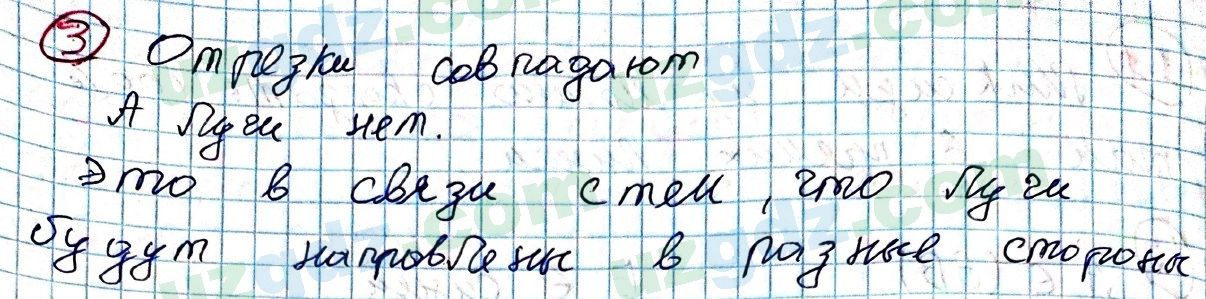 3 Отрезки совпадают
А Лучи нет.
Это в связи с тем, что Лучи
будут направлены в разные стороны
uzgdz.com